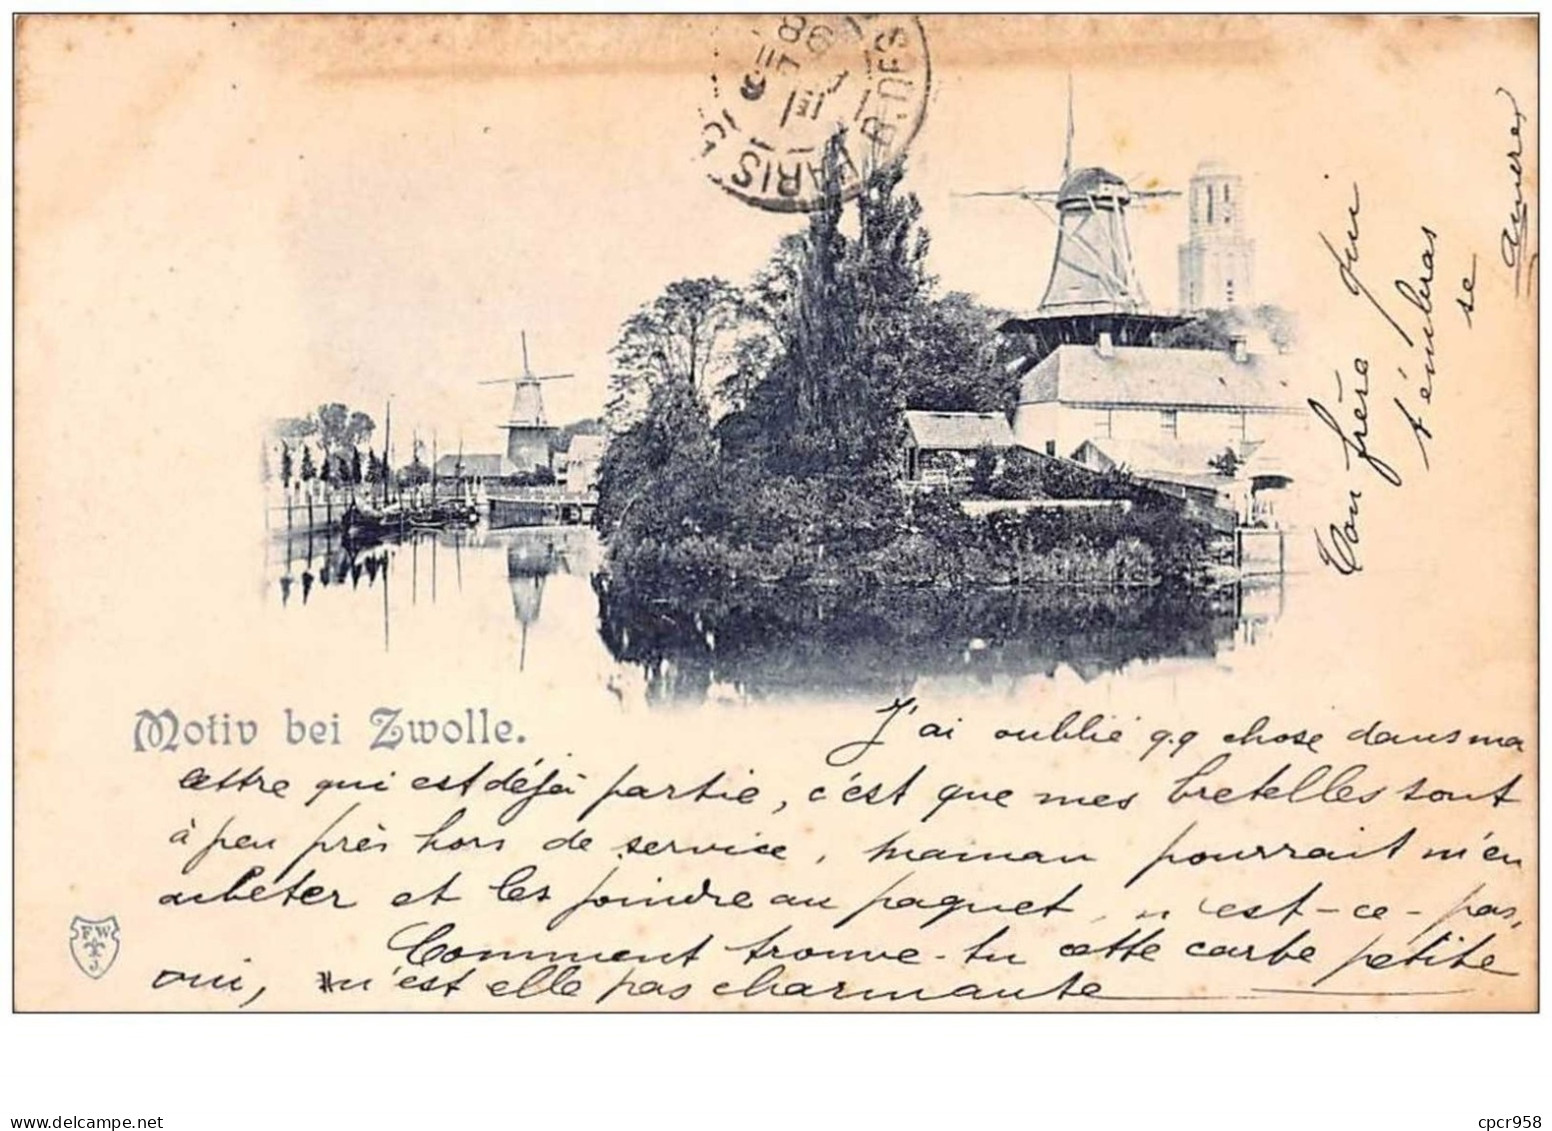 PARIS
R. DES
Motiv bei Zwolle.
J'ai oublié q.q chose dans ma
lettre qui est déjà partie, c'est que mes bretelles sont
à peu près hors de service, maman pourrait m'en
acheter et les joindre au paquet, n'est-ce-pas,
Comment trouve-tu cette carte petite
oui, n'est elle pas charmante
Ton frère qui
t'embras
se
F W
J
cpcr958